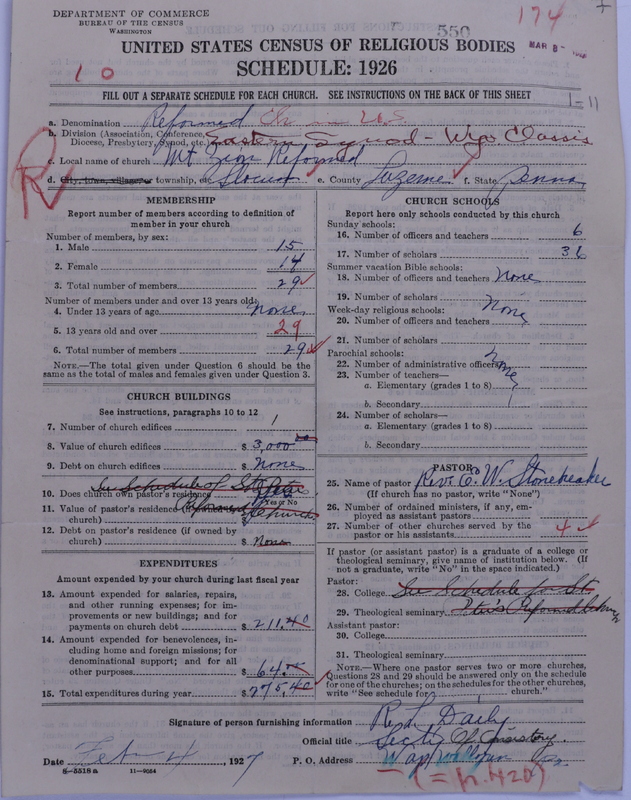 DEPARTMENT OF COMMERCE
BUREAU OF THE CENSUS
WASHINGTON
550
174
MAR 8-
UNITED STATES CENSUS OF RELIGIOUS BODIES
SCHEDULE: 1926
1 0
FILL OUT A SEPARATE SCHEDULE FOR EACH CHURCH. SEE INSTRUCTIONS ON THE BACK OF THIS SHEET
1-11
a. Denomination Reformed Ch in U.S.
b. Division (Association, Conference, Diocese, Presbytery, Synod, etc.) Eastern Synod - Wyo Classis
c. Local name of church Mt Zion Reformed
d. City, town, village or township, etc. Slocum e. County Luzerne f. State Penna
R
MEMBERSHIP
Report number of members according to definition of member in your church
Number of members, by sex:
1. Male 15
2. Female 14
3. Total number of members 29
Number of members under and over 13 years old:
4. Under 13 years of age none
5. 13 years old and over 29
6. Total number of members 29
NOTE.—The total given under Question 6 should be the same as the total of males and females given under Question 3.
CHURCH BUILDINGS
See instructions, paragraphs 10 to 12
7. Number of church edifices 1
8. Value of church edifices $ 3,000 00
9. Debt on church edifices $ None
10. Does church own pastor's residence Yes or No
See Schedule of St. Peter Reformed Church
11. Value of pastor's residence (if owned by church) $
12. Debt on pastor's residence (if owned by church) $ None
EXPENDITURES
Amount expended by your church during last fiscal year
13. Amount expended for salaries, repairs, and other running expenses; for improvements or new buildings; and for payments on church debt $ 211.40
14. Amount expended for benevolences, including home and foreign missions; for denominational support; and for all other purposes $ 64.00
15. Total expenditures during year $ 275.40
CHURCH SCHOOLS
Report here only schools conducted by this church
Sunday schools:
16. Number of officers and teachers 6
17. Number of scholars 36
Summer vacation Bible schools:
18. Number of officers and teachers None
19. Number of scholars
Week-day religious schools: None
20. Number of officers and teachers
21. Number of scholars
Parochial schools:
22. Number of administrative officers None
23. Number of teachers—
a. Elementary (grades 1 to 8)
b. Secondary
24. Number of scholars—
a. Elementary (grades 1 to 8)
b. Secondary
PASTOR
25. Name of pastor Rev. E. W. Stonebraker
(If church has no pastor, write "None")
26. Number of ordained ministers, if any, employed as assistant pastors
27. Number of other churches served by the pastor or his assistants 4
If pastor (or assistant pastor) is a graduate of a college or theological seminary, give name of institution below. (If not a graduate, write "No" in the space indicated.)
Pastor:
28. College See Schedule for St.
29. Theological seminary Peter's Reformed Church
Assistant pastor:
30. College
31. Theological seminary
NOTE.—Where one pastor serves two or more churches, Questions 28 and 29 should be answered only on the schedule for one of the churches; on the schedules for the other churches, write "See schedule for church."
Signature of person furnishing information
Official title Secty of Consistory
Date Feb 4, 1927 P. O. Address Wapwallopen Pa
8-5518 a 11-9064
(= p. 420)